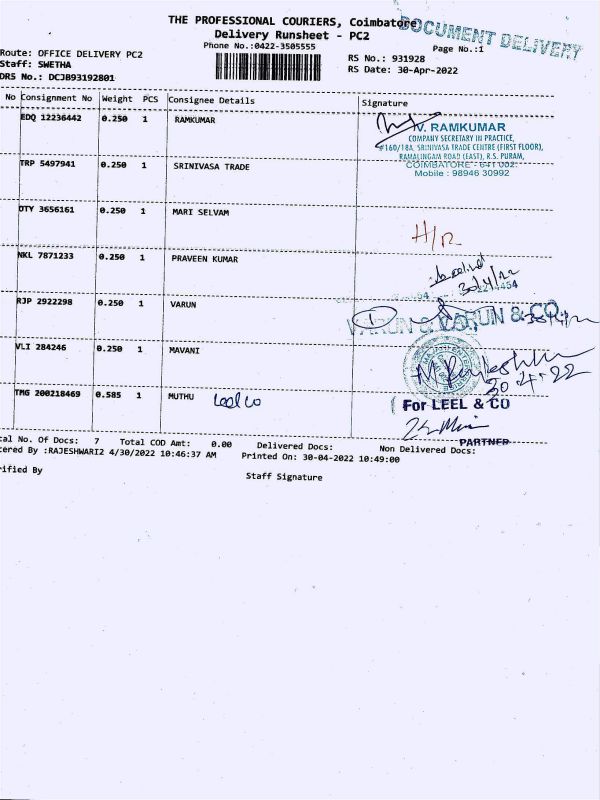 THE PROFESSIONAL COURIERS, Coimbatore
DOCUMENT DELIVERY
Delivery Runsheet - PC2
Phone No.:0422-3505555
Page No.:1
Route: OFFICE DELIVERY PC2
RS No.: 931928
Staff: SWETHA
RS Date: 30-Apr-2022
DRS No.: DCJB93192801
No Consignment No Weight PCS Consignee Details Signature
EDQ 12236442 0.250 1 RAMKUMAR
V. RAMKUMAR
COMPANY SECRETARY IN PRACTICE,
#160/18A, SRINIVASA TRADE CENTRE (FIRST FLOOR),
RAMALINGAM ROAD (EAST), R.S. PURAM,
COIMBATORE - 641 002.
Mobile : 98946 30992
TRP 5497941 0.250 1 SRINIVASA TRADE
DTY 3656161 0.250 1 MARI SELVAM
H/R
NKL 7871233 0.250 1 PRAVEEN KUMAR
30/4/22
RJP 2922298 0.250 1 VARUN
VARUN & VARUN & CO.
VLI 284246 0.250 1 MAVANI
30-4-22
TMG 200218469 0.585 1 MUTHU Leel co
For LEEL & CO
PARTNER
tal No. Of Docs: 7 Total COD Amt: 0.00 Delivered Docs: Non Delivered Docs:
tered By :RAJESHWARI2 4/30/2022 10:46:37 AM Printed On: 30-04-2022 10:49:00
rified By
Staff Signature